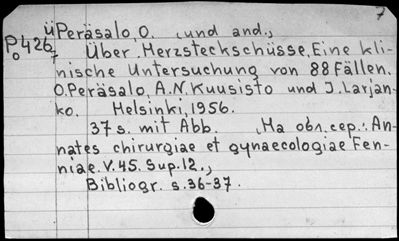 7
üPeräsalo, O. (und and.,
Po426 Über Herzsteckschüsse, Eine kli-
7
nische Untersuchung von 88 Fällen.
O. Peräsalo, A.N. Kuusisto und J. Larjan-
ko. Helsinki, 1956.
37 s. mit Abb. (На обл. сер.: An-
nates chirurgiae et gynaecologiae Fen-
niae. V. 45. Sup. 12.,
Bibliogr. s. 36-37.